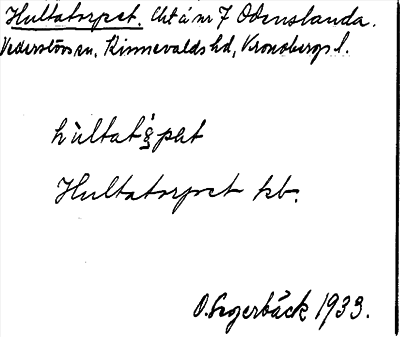 Hultatorpet. Lht å nr 7 Odenslanda.
Vederslövs sn, Kinnevalds hd, Kronobergs l.
hùltatå̤pət
Hultatorpet kb.
O. Segerbäck 1933.